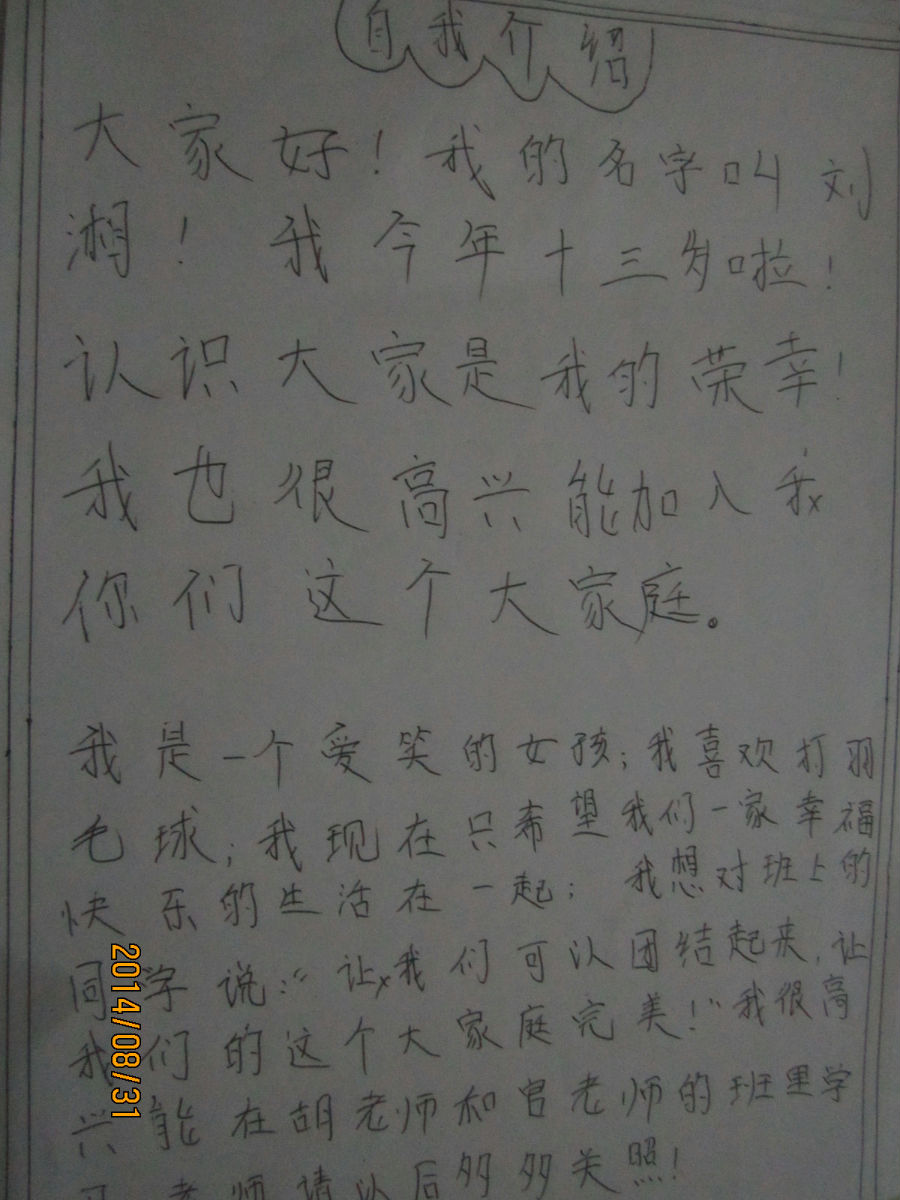 自我介绍
大家好!我的名字叫刘
湘!我今年十三岁啦!
认识大家是我的荣幸!
我也很高兴能加入我
你们这个大家庭。
我是一个爱笑的女孩;我喜欢打羽
毛球;我现在只希望我们一家幸福
快乐的生活在一起;我想对班上的
同学说:“让我们可以团结起来让
我们的这个大家庭完美!”我很高
兴能在胡老师和官老师的班里学
老师请以后多多关照!
2014/08/31